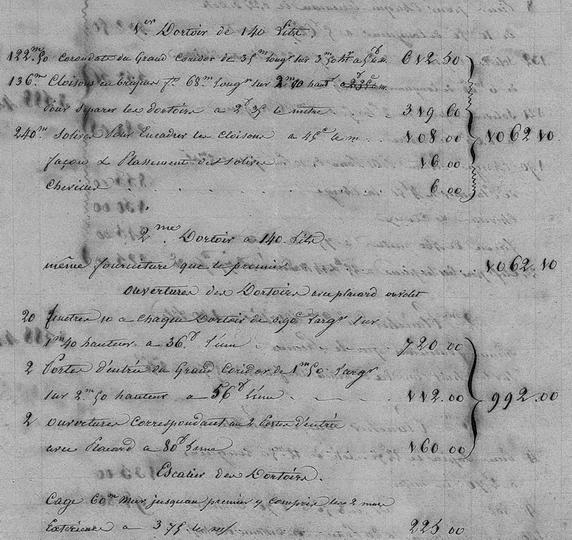 1er Dortoir de 140 Lits
122m50 corondats du Grand Coridor de 35m longr sur 3m50 hr a 5f le m. 612.50
136m Cloisons en briques 68m Longr sur 2m10 haut
pour separer les dortoirs a 2f35 le metre 319.60
240m Solives pour Encadrer les Cloisons a 45c le m. 108.00 1062.10
façon & Plassement des solives 16.00
Chevilles 6.00
2me Dortoir a 140 Lits
même fourniture que le premier 1062.10
ouvertures des Dortoirs avec placard ou volet
20 fenetres 10 a chaque Dortoir de 0.90c Largr sur
1m40 hauteur a 36f L'une 720.00
2 Portes d'entrée du Grand Coridor de 1m50 Largr
sur 2m50 hauteur a 56f L'une 112.00 992.00
2 ouvertures correspondant au 2 Portes d'entrée
avec Placard a 80f L'une 160.00
Escalier des Dortoirs.
Cage 60m Mur jusqu'au premier y compris les 2 murs
Exterieurs a 3.75 le m/ 225.00